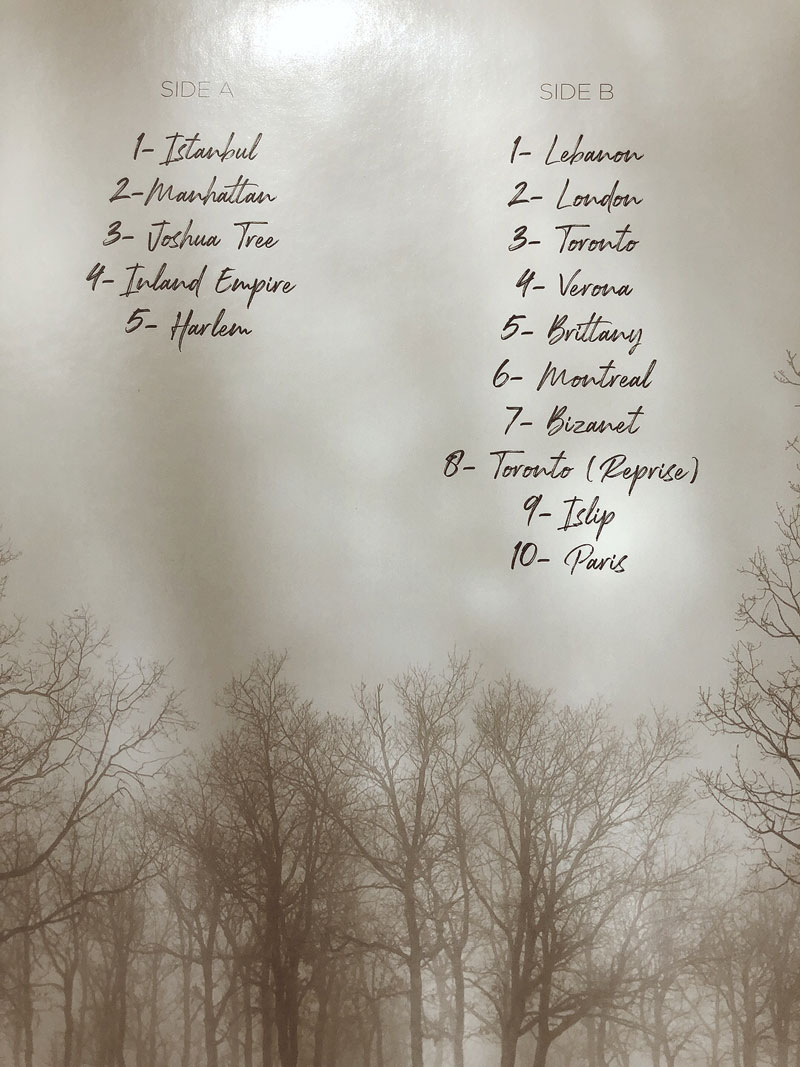 SIDE A
1- Istanbul
2-Manhattan
3- Joshua Tree
4- Inland Empire
5- Harlem
SIDE B
1- Lebanon
2- London
3- Toronto
4- Verona
5- Brittany
6- Montreal
7- Bizanet
8- Toronto (Reprise)
9- Islip
10- Paris